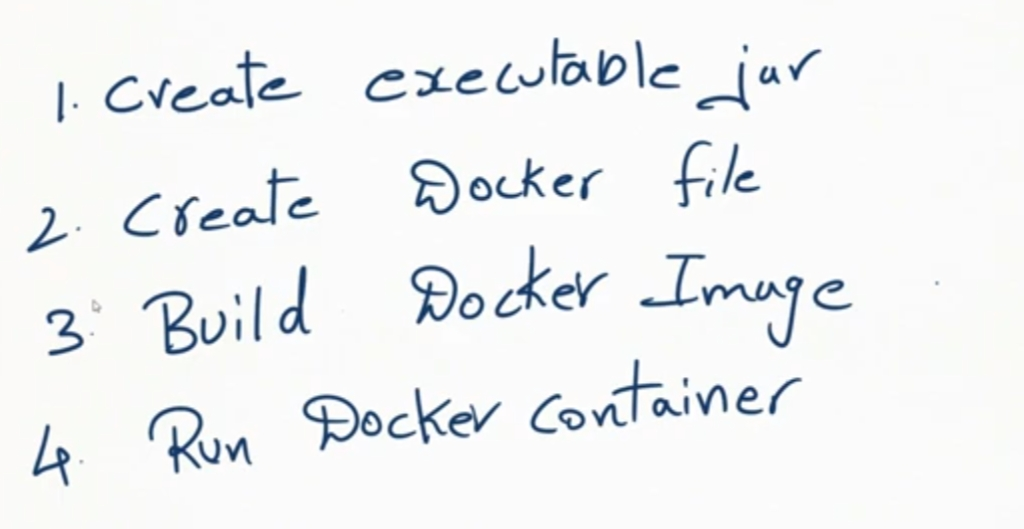 1. Create executable jar
2. Create Docker file
3. Build Docker Image
4. Run Docker container